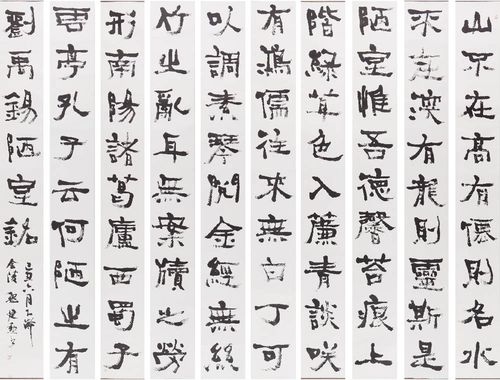 山不在高有僊則名水
不在深有龍則靈斯是
陋室惟吾德馨苔痕上
階綠草色入簾青談咲
有鴻儒往來無白丁可
以調素琴閱金經無絲
竹之亂耳無案牘之勞
形南陽諸葛廬西蜀子
雲亭孔子云何陋之有
劉禹錫陋室銘
六月
金陵